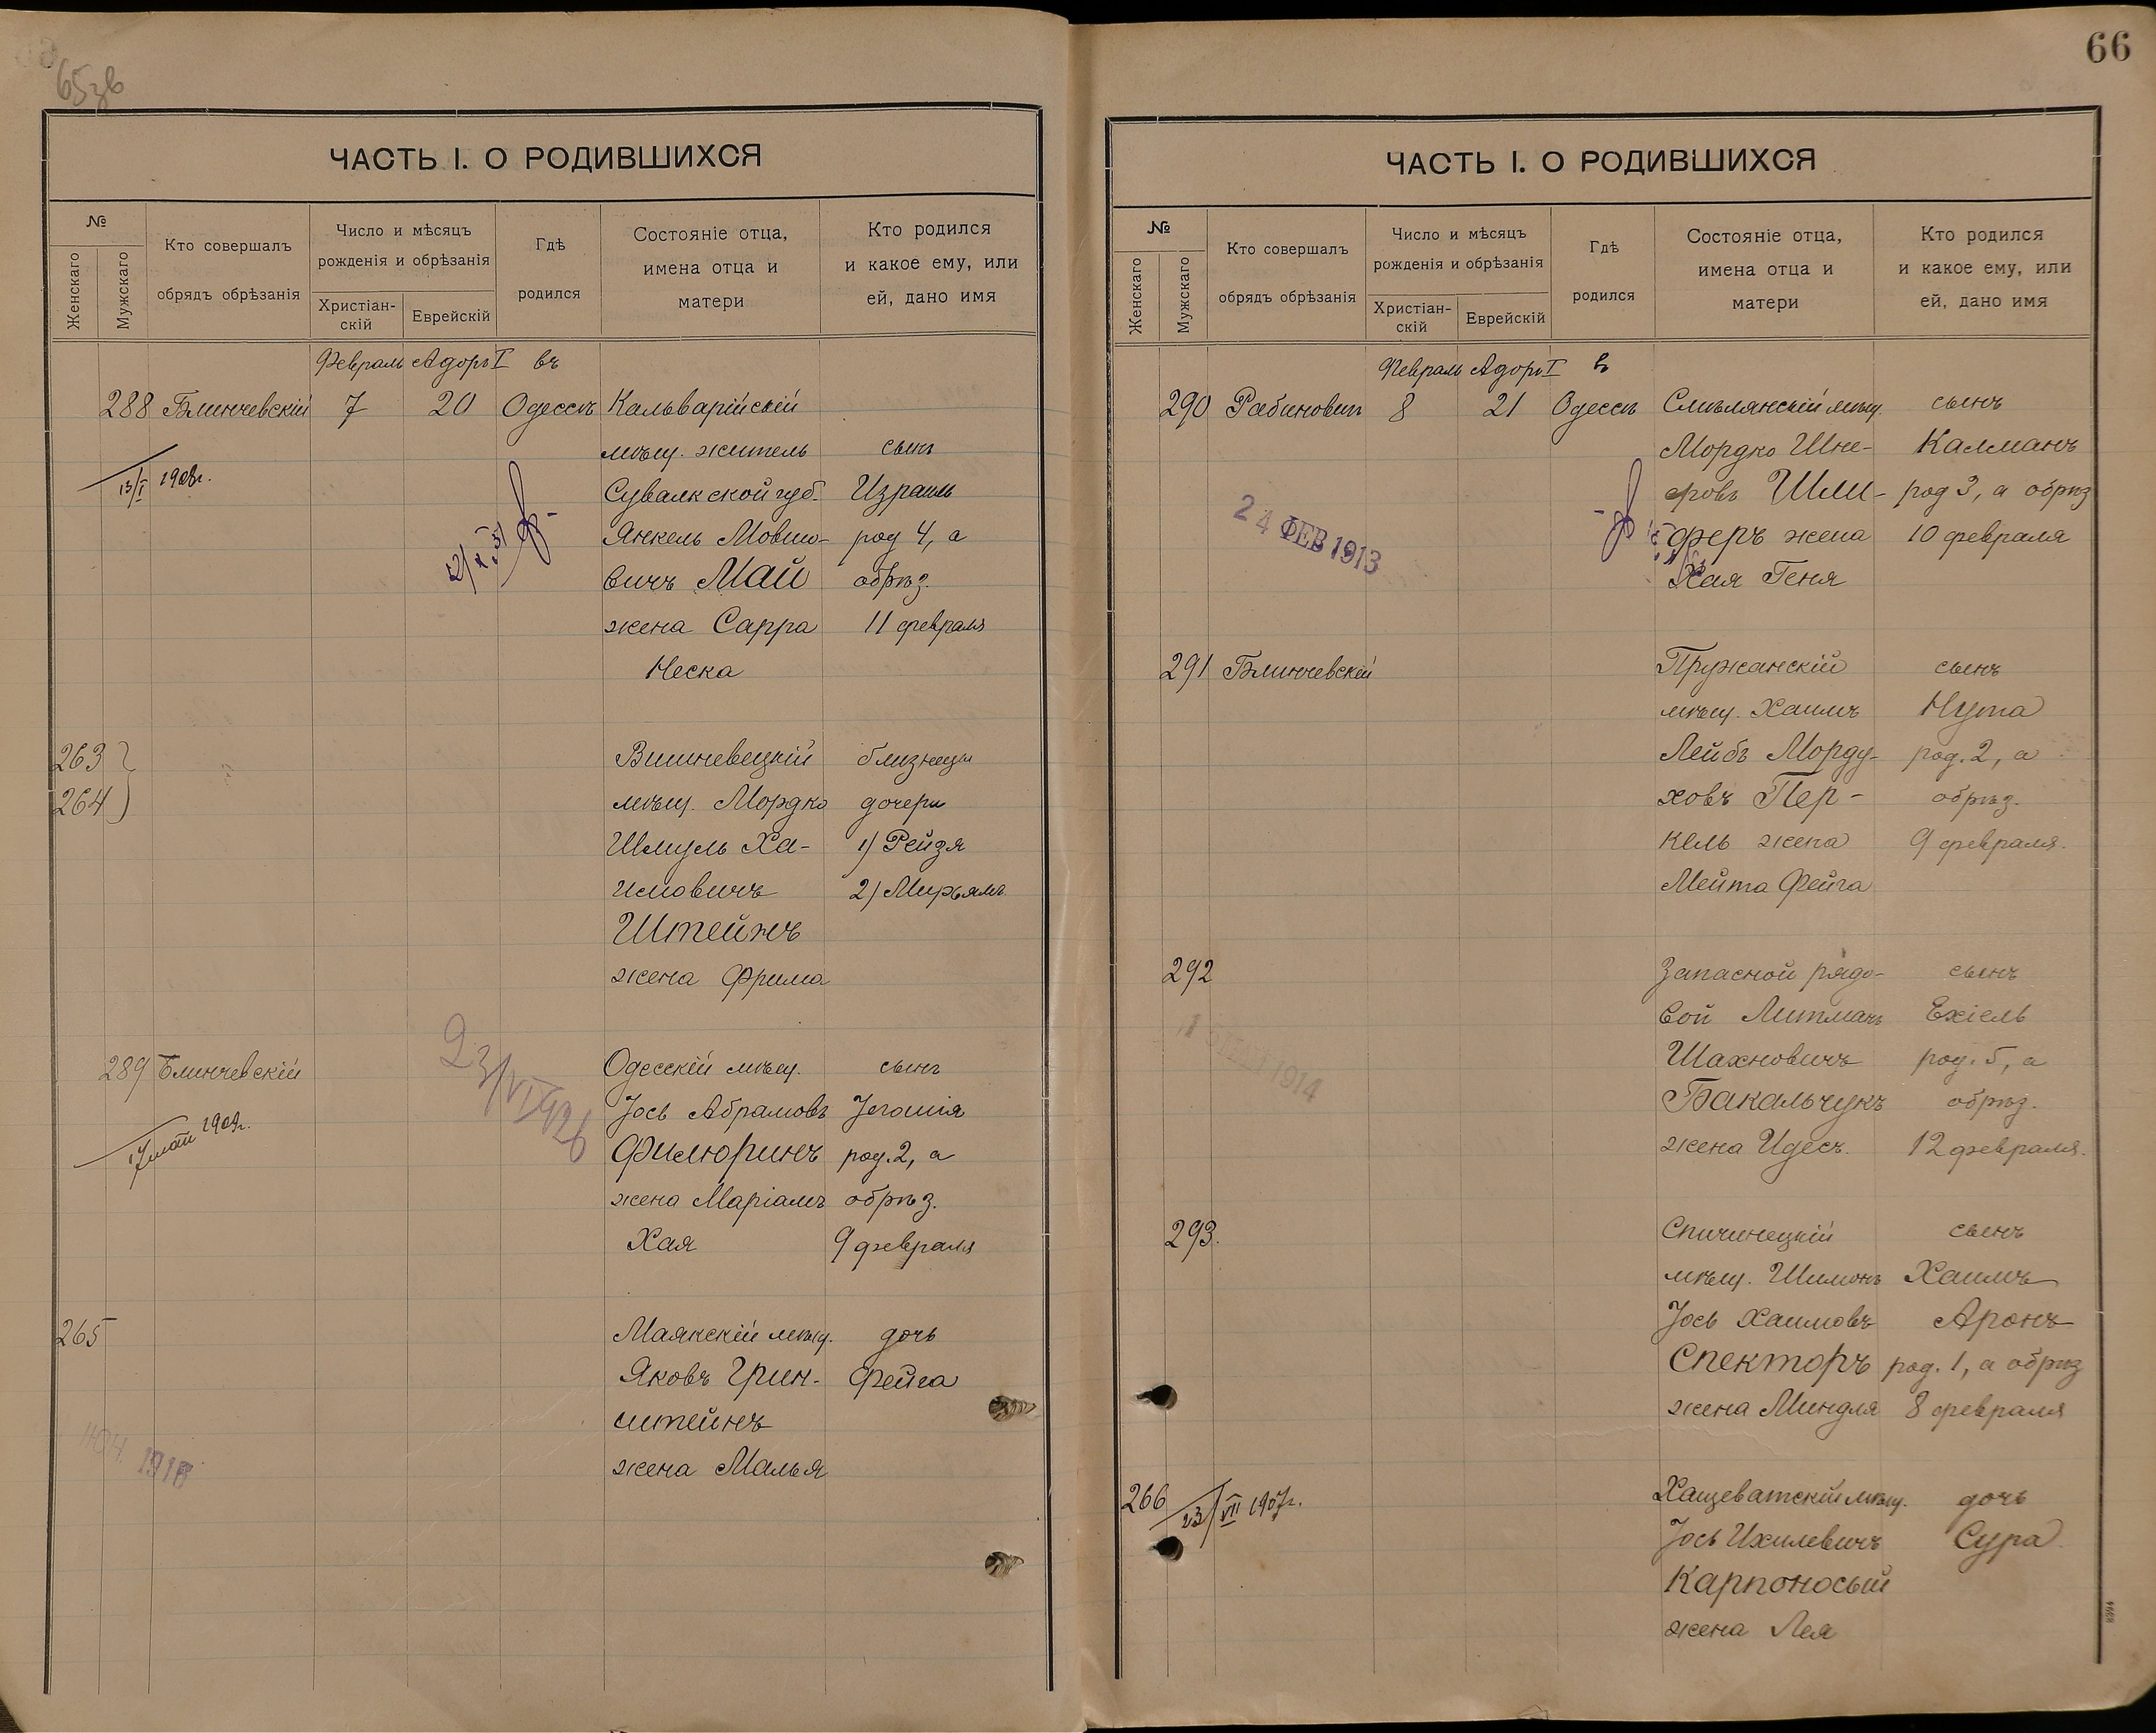 65зв
ЧАСТЬ I. О РОДИВШИХСЯ
№
Женскаго
Мужскаго
Кто совершалъ
обрядъ обрѣзанія
Число и мѣсяцъ
рожденія и обрѣзанія
Христіан-
скій
Еврейскій
Гдѣ
родился
Состояніе отца,
имена отца и
матери
Кто родился
и какое ему, или
ей, дано имя
Февраль Адоръ I въ
288 Блинчевскій 7 20 Одессѣ Кальварійскій
мѣщ. житель сынъ
13/I 1908г.
Сувалкской губ. Израиль
Янкель Мовшо- род 4, а
вичъ Май обрѣз.
жена Сарра 11 февраля
Неска
263
264
Вишневецкій близнецы
мѣщ. Мордко дочери
Шмуль Ха- 1) Рейзя
имовичъ 2) Мирьямъ
Штейнъ
жена Фрима
23/VI 926
289 Блинчевскій Одесскій мѣщ. сынъ
Іось Абрамовъ Іегошія
17 мая 1909г.
Филюринъ род. 2, а
жена Маріамъ обрѣз.
Хая 9 февраля
265 Маякскій мѣщ. дочь
Яковъ Грин- Фейга
штейнъ
жена Малья
66
ЧАСТЬ I. О РОДИВШИХСЯ
№
Женскаго
Мужскаго
Кто совершалъ
обрядъ обрѣзанія
Число и мѣсяцъ
рожденія и обрѣзанія
Христіан-
скій
Еврейскій
Гдѣ
родился
Состояніе отца,
имена отца и
матери
Кто родился
и какое ему, или
ей, дано имя
Февраль Адоръ I въ
290 Рабинович 8 21 Одессѣ Смѣлянскій мѣщ. сынъ
Мордко Шне- Калманъ
еровъ Шли- род 3, а обрѣз
24 ФЕВ 1913
феръ жена 10 февраля
Хая Геня
291 Блинчевскій Пружанскій сынъ
мѣщ. Хаимъ Нута
Лейбъ Морду- род. 2, а
ховъ Пер- обрѣз.
кель жена 9 февраля.
Мейта Фейга
292 Запасной рядо- сынъ
вой Литманъ Ехіель
Шахновичъ род. 5, а
1914
Бакальчукъ обрѣз.
жена Идесъ. 12 февраля.
293. Спичинецкій сынъ
мѣщ. Шимонъ Хаимъ
Іось Хаимовъ Аронъ
Спекторъ род. 1, а обрѣз
жена Миндля 8 февраля
266 Хащеватскій мѣщ. дочь
23/VII 1907г.
Іось Ихилевичъ Сура
Карпоносый
жена Лея